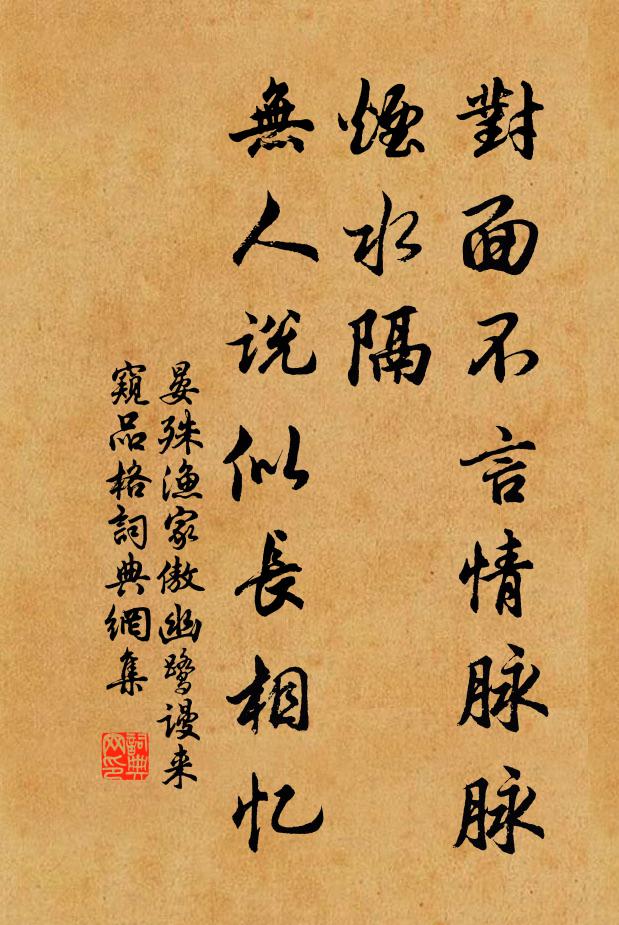 對面不言情脉脉
煙水隔
無人説似長相忆
晏殊漁家傲幽鹭謾来
窺品格詞典網集
詞典网印